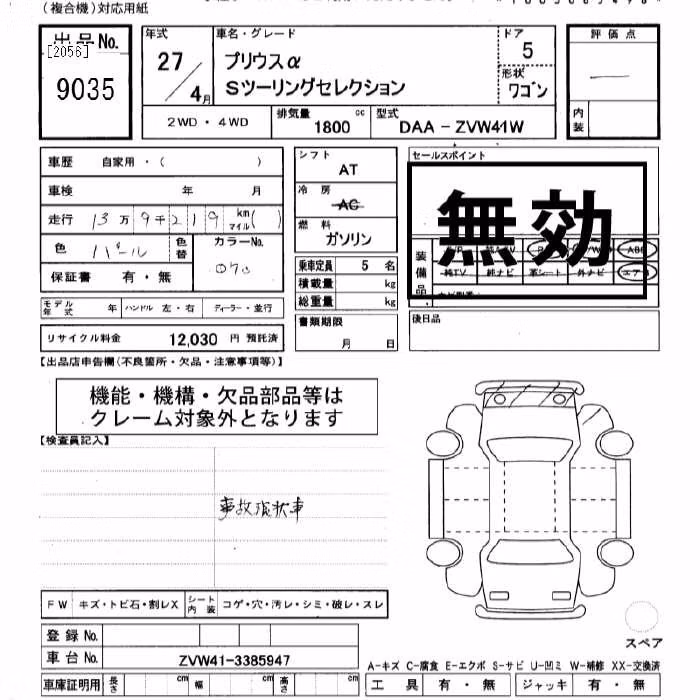 (複合機)対応用紙
出品No.
[2056]
9035
年式
27/4月
車名・グレード
プリウスα
Sツーリングセレクション
ドア
5
形状
ワゴン
評価点
内装
2WD・4WD
排気量 1800 cc
型式 DAA-ZVW41W
車歴 自家用・( )
車検 年 月
走行 13万9千219 km マイル( )
色 パール 色替 カラーNo. 070
保証書 有・無
モデル年式 年 ハンドル 左・右 ディーラー・並行
リサイクル料金 12,030 円 預託済
シフト
AT
冷房
AC
燃料
ガソリン
乗車定員 5 名
積載量 kg
総重量 kg
書類期限
月 日
セールスポイント
無効
装備品
ABS
純TV 純ナビ 革シート 外ナビ エアB
後日品
【出品店申告欄(不良箇所・欠品・注意事項等)】
機能・機構・欠品部品等は
クレーム対象外となります
【検査員記入】
事故現状車
FW キズ・トビ石・割レX シート内装 コゲ・穴・汚レ・シミ・破レ・スレ
登録No.
車台No. ZVW41-3385947
車庫証明用 長さ cm 幅 cm 高さ cm
スペア
A-キズ C-腐食 E-エクボ S-サビ U-凹ミ W-補修 XX-交換済
工具 有・無 ジャッキ 有・無